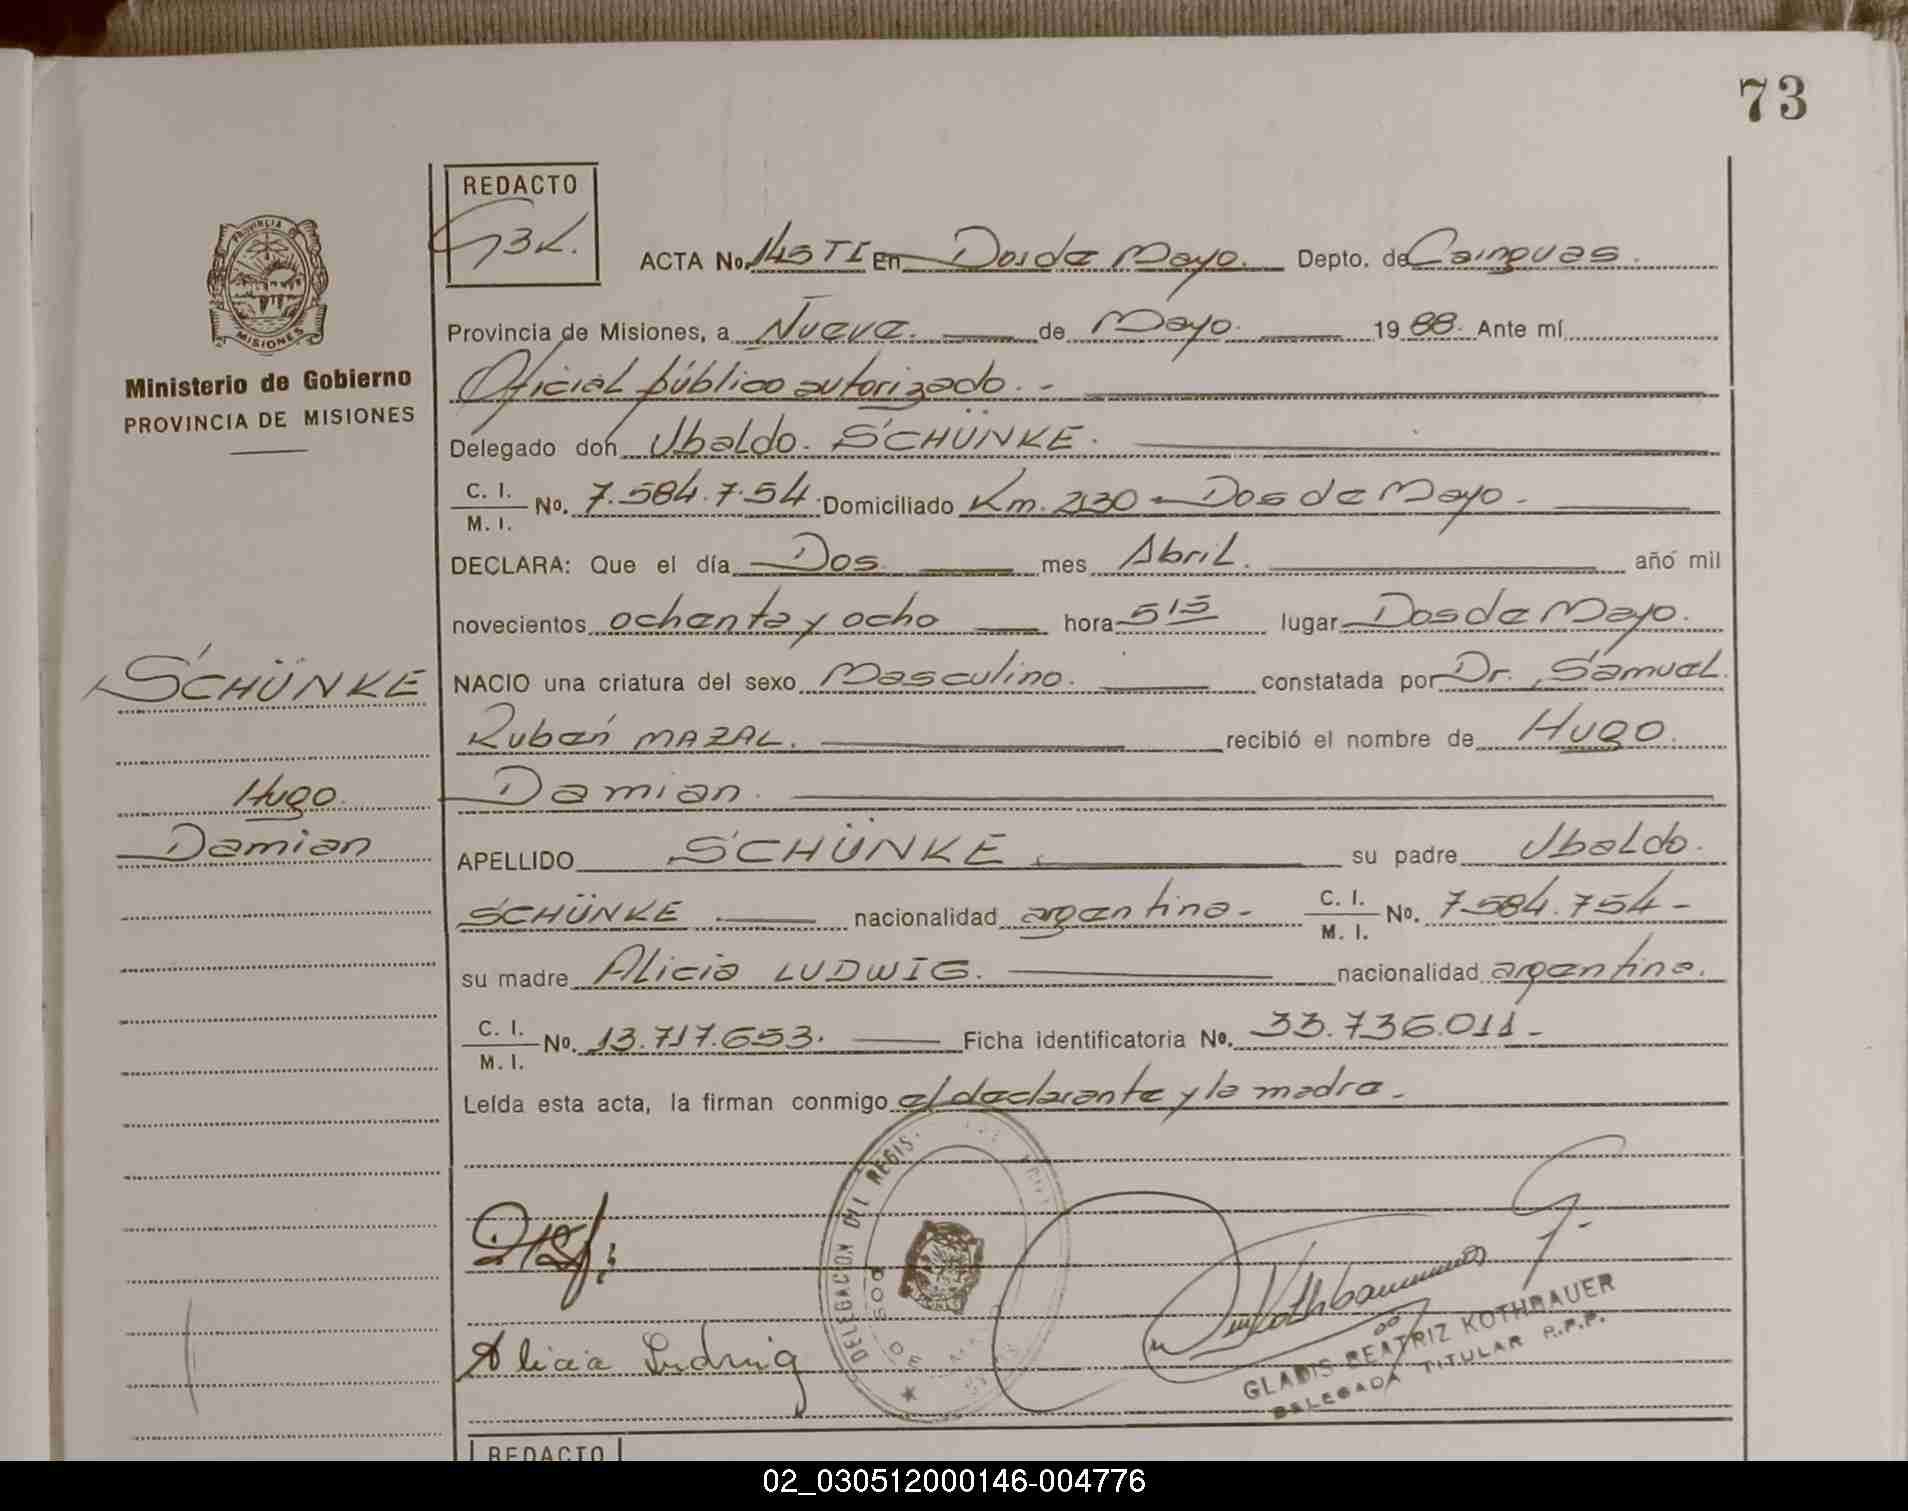 73
REDACTO
GBK.
PROVINCIA DE
MISIONES
Ministerio de Gobierno
PROVINCIA DE MISIONES
ACTA No. 145 TI En Dos de Mayo. Depto. de Cainguas.
Provincia de Misiones, a Nueve. de Mayo. 19 88. Ante mí
Oficial público autorizado. -
Delegado don Ubaldo. SCHÜNKE.
C. I. / M. I. No. 7.584.754. Domiciliado Km. 230 - Dos de Mayo.
DECLARA: Que el día Dos mes Abril. año mil
novecientos ochenta y ocho hora 5 15 lugar Dos de Mayo.
SCHÜNKE
NACIO una criatura del sexo Masculino. constatada por Dr. Samuel
Rubén MAZAL. recibió el nombre de Hugo.
Hugo.
Damian.
Damian
APELLIDO SCHÜNKE su padre Ubaldo.
SCHÜNKE nacionalidad argentina - C. I. / M. I. No. 7.584.754 -
su madre Alicia LUDWIG. nacionalidad argentina.
C. I. / M. I. No. 13.717.653. Ficha identificatoria No. 33.736.011 -
Leída esta acta, la firman conmigo el declarante y la madre -
DELEGACION DEL REGIS.
DE DOS
Alicia Ludwig
GLADIS BEATRIZ KOTHBAUER
DELEGADA TITULAR R.P.P.
REDACTO
02_030512000146-004776